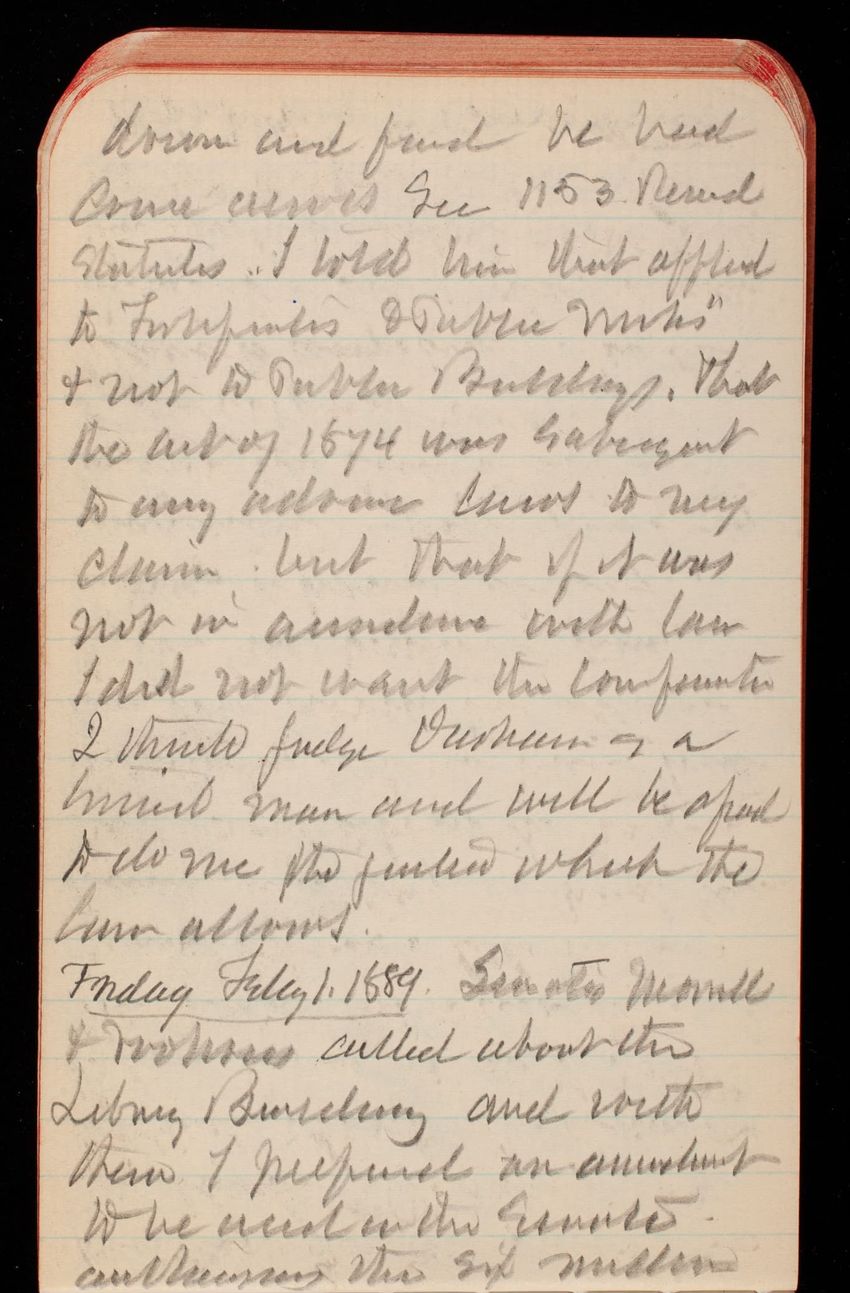 down and found he had
come across See 1153 Revised
Statutes. I told him that applied
to Fortifications & Public Works"
& not to Public Buildings. That
the act of 1874 was Subsequent
to any adverse laws to my
claim. but that if it was
not in accordance with law
I did not want the
I think Judge Durham is a
man and will be afraid
to do me the justice which the
law allows.
Friday Feby 1. 1889. Senator Morrill
& Voorhees called about the
Library Building and with
them I prepared an amendment
to be used in the Senate.
authorising the six million